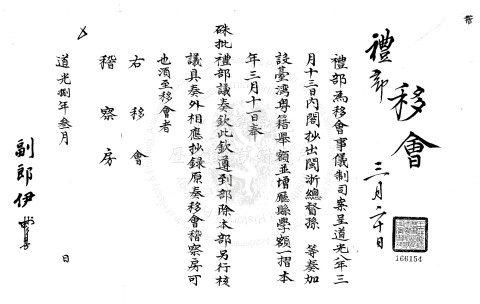 禮部
移會
三月二十日
禮部為移會事儀制司案呈道光八年三
月十三日內閣抄出閩浙總督孫 等奏加
設臺灣粵籍舉額並增廳縣學額一摺本
年三月十一日奉
硃批禮部議奏欽此欽遵到部除本部另行核
議具奏外相應抄錄原奏移會稽察房可
也須至移會者
右移會
稽察房
道光捌年叁月 日
副郎伊
166154